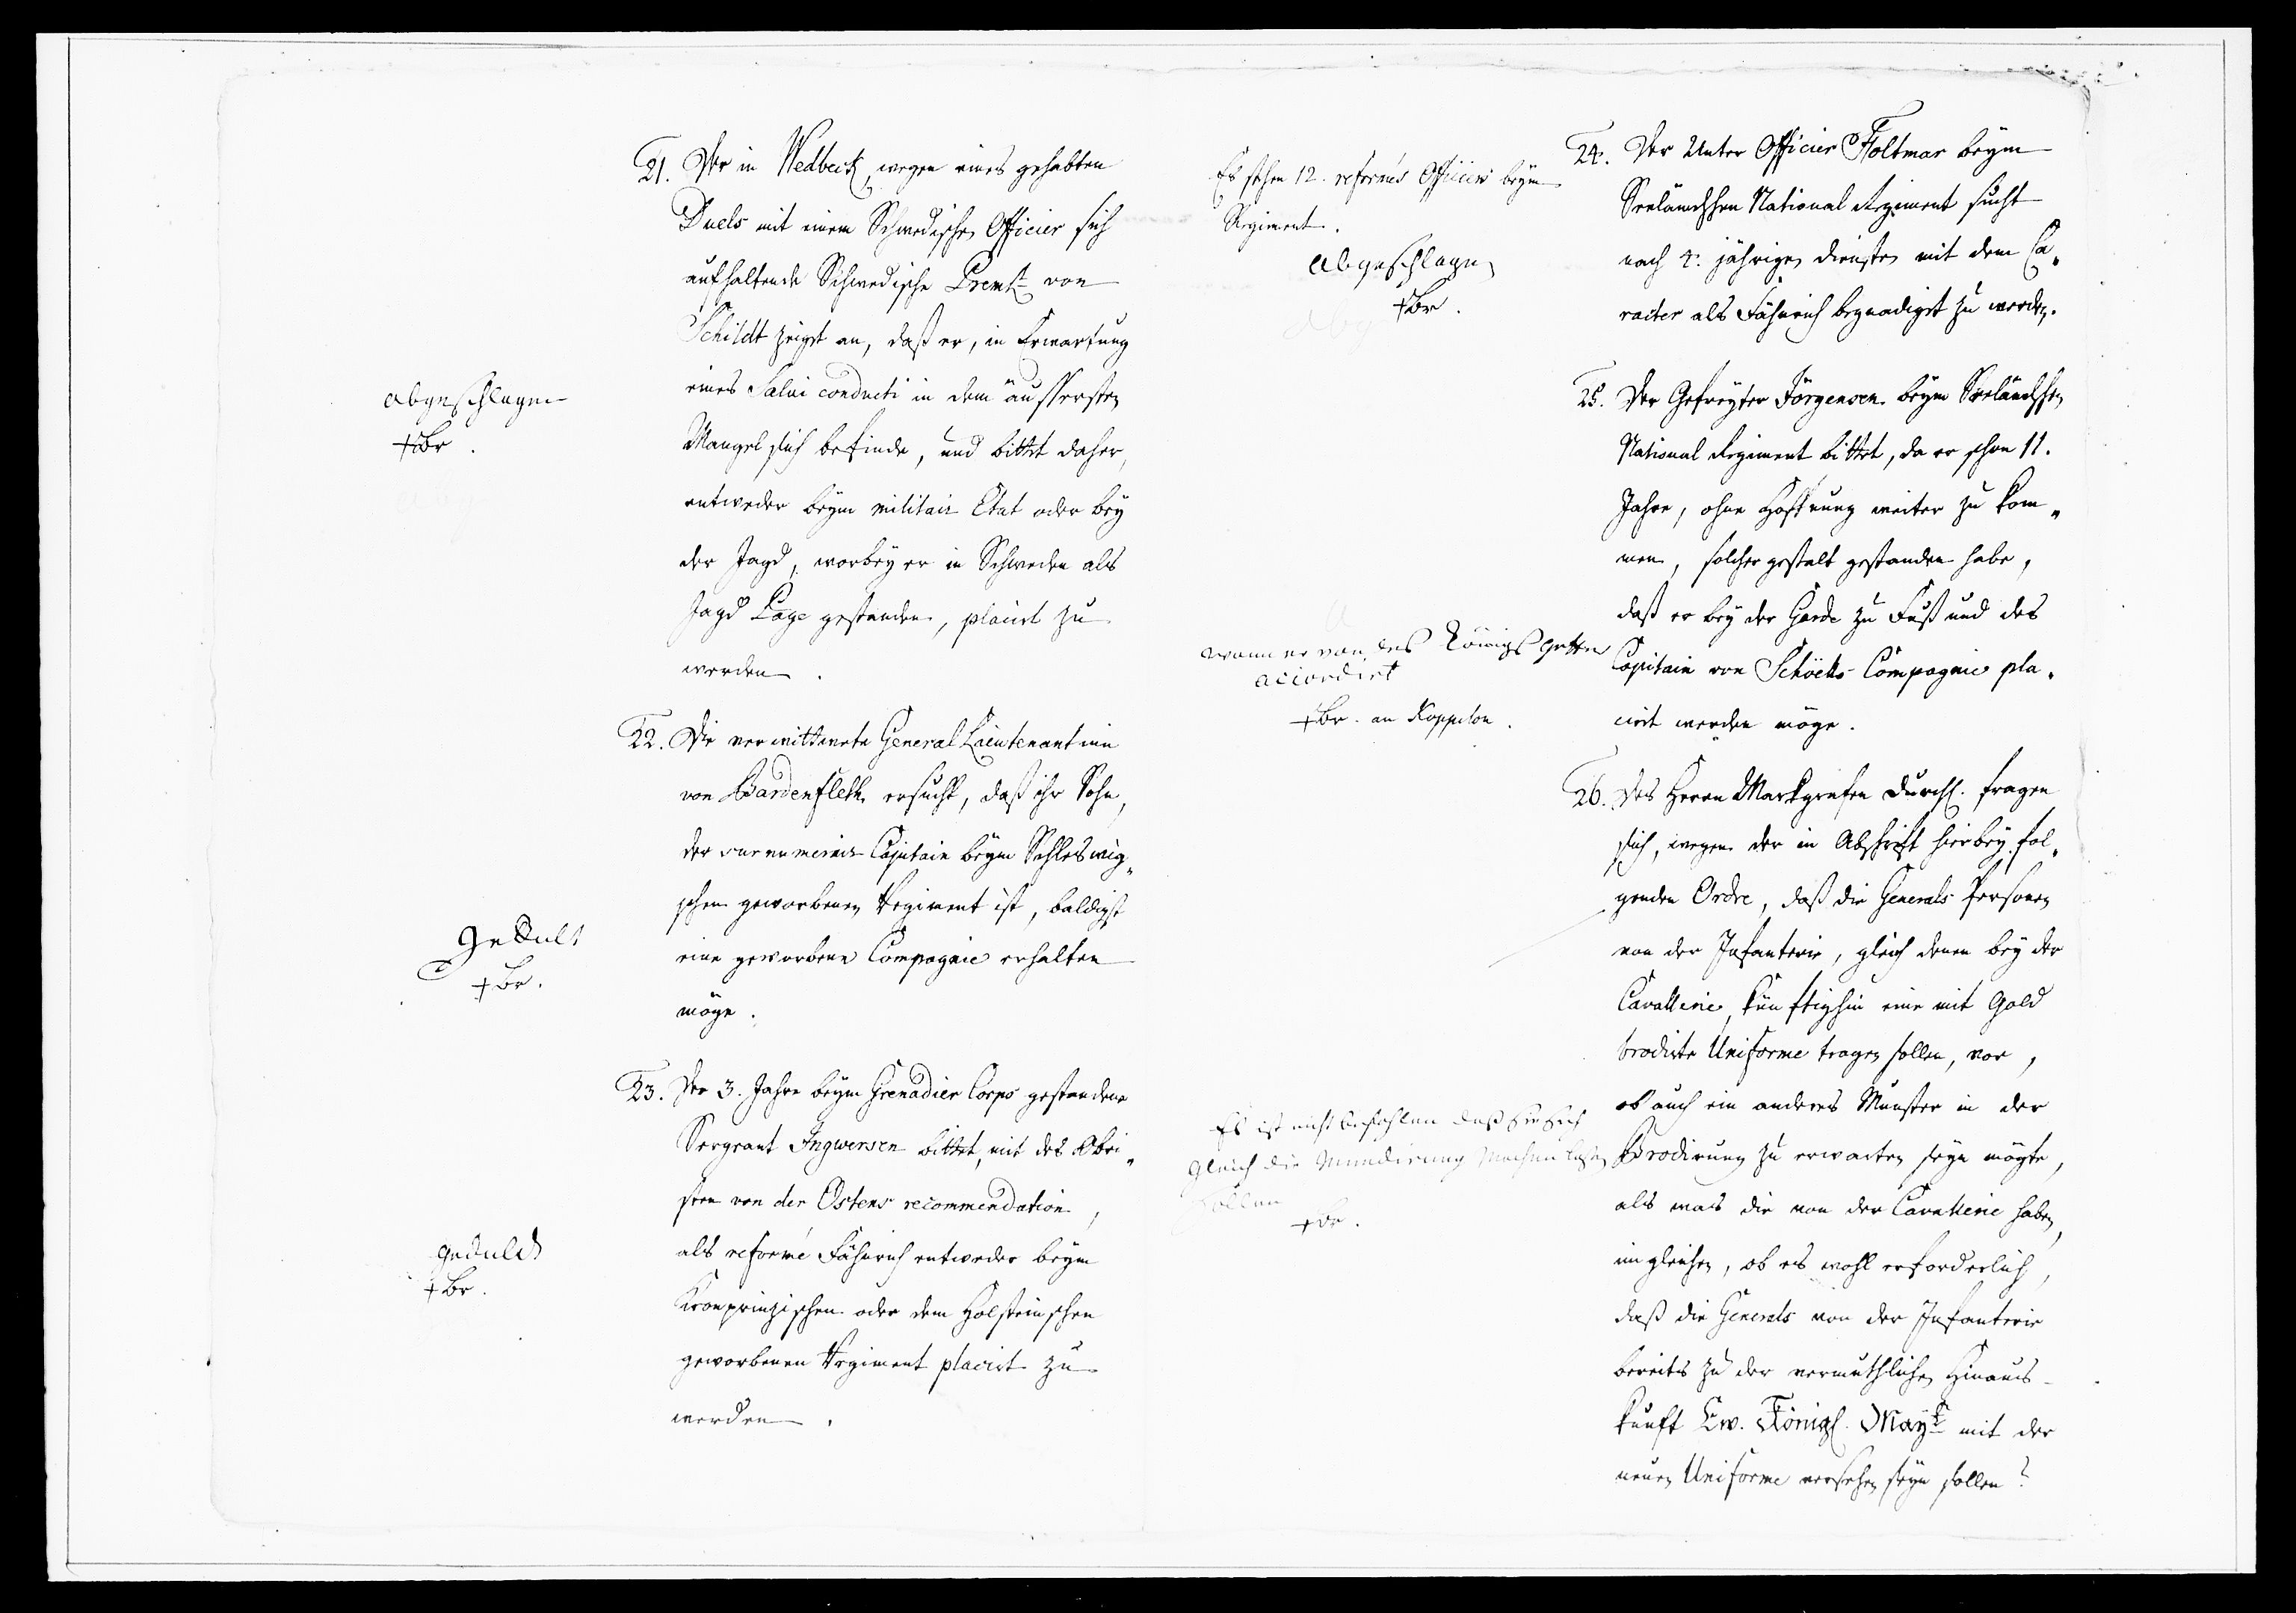 21. Der in Wedbeck, wegen eines gehabten
Duels mit einem Schwedischen Officier sich
aufhaltende Schwedische Premt von
Schildt zeigt an, daß er, in Erwartung
eines Salvi conducti in dem äussersten
Mangel sich befinde, und bittet daher,
entweder beym militair Etat oder bey
der Jagd, worbey er in Schweden als
Jagd Page gestanden, placirt zu
werden.
abgeschlagen
+ Br.
22. Die verwittwete General Lieutenantinn
von Bardenfleth ersucht, daß ihr Sohn,
der surnumerair Capitain beym Schleswig„
schen geworbenen Regiment ist, baldigst
eine geworbene Compagnie erhalten
möge.
Gedult
+ Br.
23. Der 3. Jahre beym Grenadier Corps gestandene
Sergeant Ingwersen bittet, mit des Obri„
sten von der Ostens recommendation,
als reformé Fähnrich entweder beym
Kronprinzischen oder dem Holsteinschen
geworbenen Regiment placirt zu
werden.
gedult
+ Br.
24. Der Unter Officier Holtmar beym
Seeländschen National Regiment sucht
nach 4. jährigen Diensten mit dem Ca„
racter als Fähnrich begnadiget zu werden.
Es stehen 12. reformés Officiers beym
Regiment.
Abgeschlagen
+ Br.
25. Der Gefreyter Jörgensen beym Seeländschen
National Regiment bittet, da er schon 11.
Jahre, ohne Hoffnung weiter zu kom„
men, solcher gestalt gestanden habe,
daß er bey der Garde zu Fuß und des
Capitain von Schoells Compagnie pla„
cirt werden möge.
wann er von des Königs
accordirt
+ Br. an Koppelow.
26. Des Herrn Markgrafen Durchl. fragen
sich, wegen der in Abschrift hierbey fol„
genden Ordre, daß die Generals Personen
von der Infanterie, gleich denen bey der
Cavallerie, künftighin eine mit Gold
brodirte Uniforme tragen sollen, vor,
ob auch ein anderes Munster in der
Brodirung zu erwarten seyn mögte,
als was die von der Cavallerie haben,
im gleichen, ob es wohl erforderlich,
daß die Generals von der Infanterie
bereits zu der vermuthlichen Hinaus-
kunft Ew. Königl. Mayt mit der
neuen Uniforme versehen seyn sollen?
Es ist nicht befohlen daß Sie Sich
gleich die Mundirung machen laßen
sollen
+ Br.